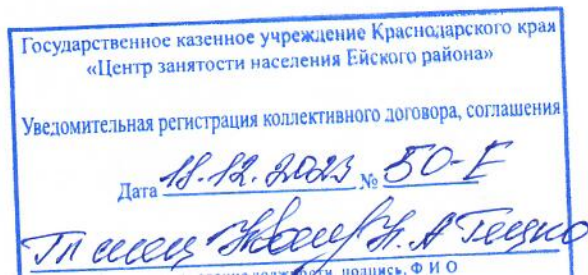 Государственное казенное учреждение Краснодарского края
«Центр занятости населения Ейского района»
Уведомительная регистрация коллективного договора, соглашения
Дата 18.12.2023 № 50-Е
Гл
подпись, Ф И О